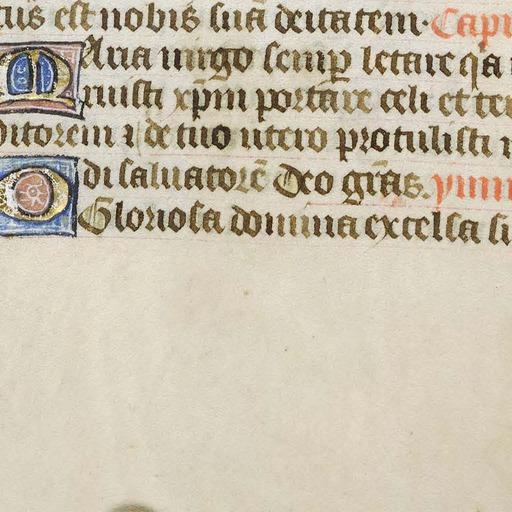 tus est nobis suā deitatem. Capi
Maria uirgo semp letare qa
ruisti xp̄m portare celi et ter
ditorem ⁊ de tuo utero protulisti
Odi saluatorē Deo grās. ymn
Gloriosa domina excelsa